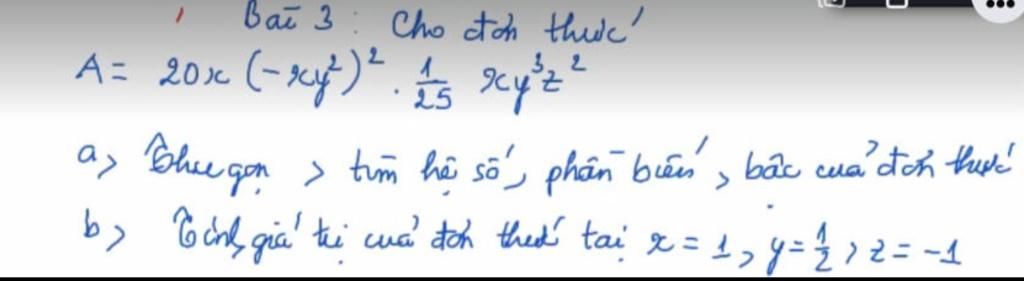 Bài 3 : Cho đơn thức
A = 20x (-xy²)² . 1/25 xy³z²
a, Thu gọn, tìm hệ số, phần biến, bậc của đơn thức
b, Tính giá trị của đơn thức tại x = 1, y = 1/2, z = -1